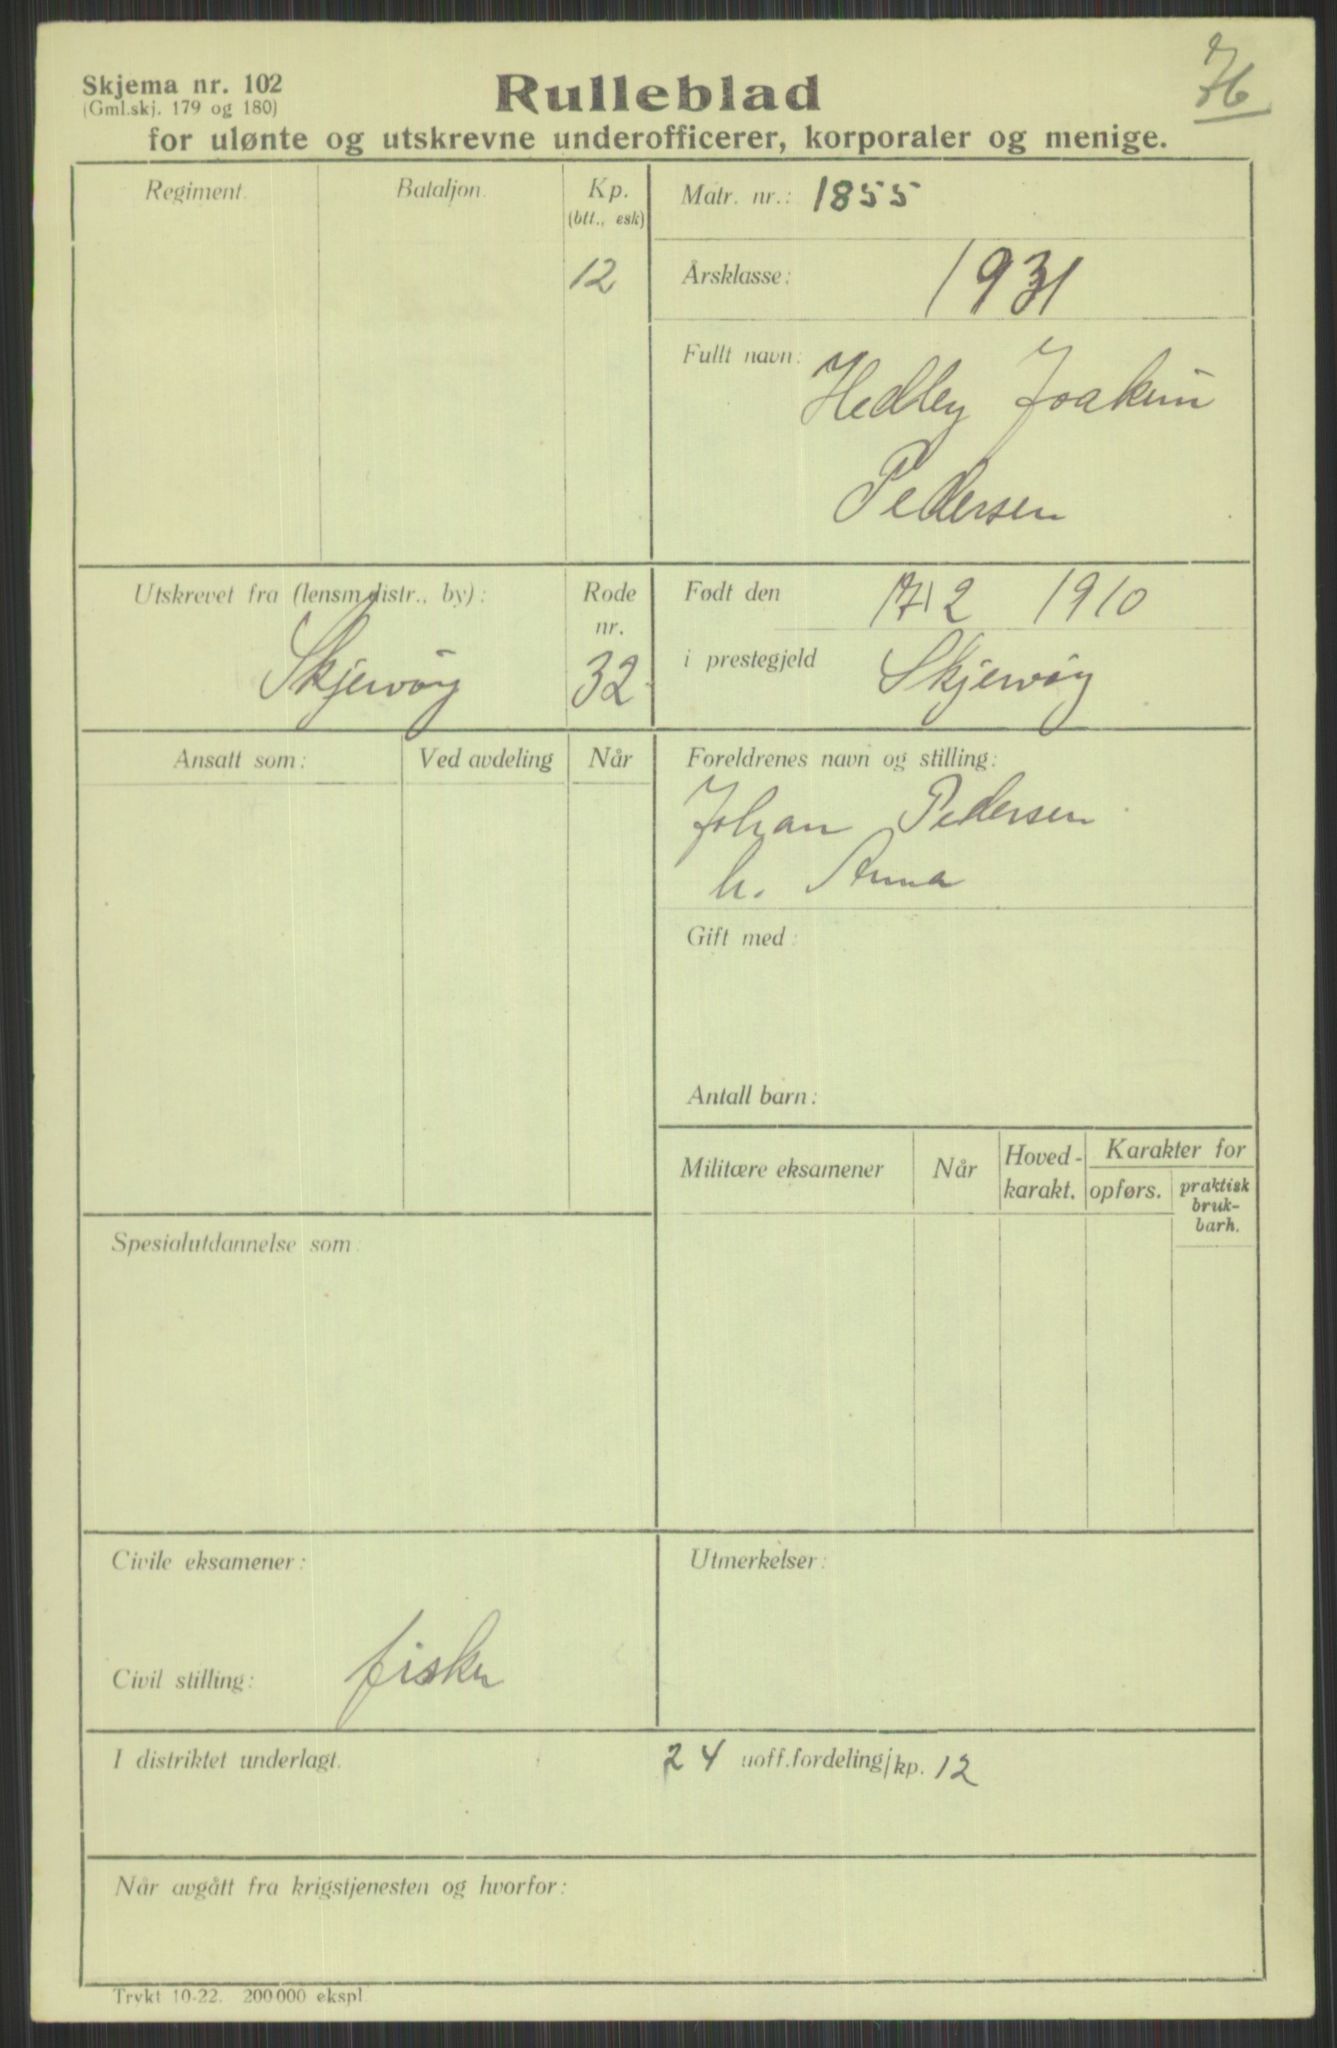 Skjema nr. 102
(Gml.skj. 179 og 180)
Rulleblad
for ulønte og utskrevne underofficerer, korporaler og menige.
Regiment.
Bataljon.
Kp.
(btt., esk)
12
Matr. nr.: 1855
Årsklasse: 1931
Fullt navn: Hedley Joakim
Pedersen
Utskrevet fra (lensm.distr., by):
Skjervøy
Rode
nr.
32
Født den 17/12 1910
i prestegjeld Skjervøy
Ansatt som:
Ved avdeling
Når
Foreldrenes navn og stilling:
Johan Pedersen
h. Anna
Gift med:
Antall barn:
Militære eksamener
Når
Hoved-
karakt.
Karakter for
opførs.
praktisk
bruk-
barh.
Spesialutdannelse som:
Civile eksamener:
Utmerkelser:
Civil stilling: fisker
I distriktet underlagt. 24 uoff.fordeling/kp. 12
Når avgått fra krigstjenesten og hvorfor:
Trykt 10-22. 200 000 ekspl.